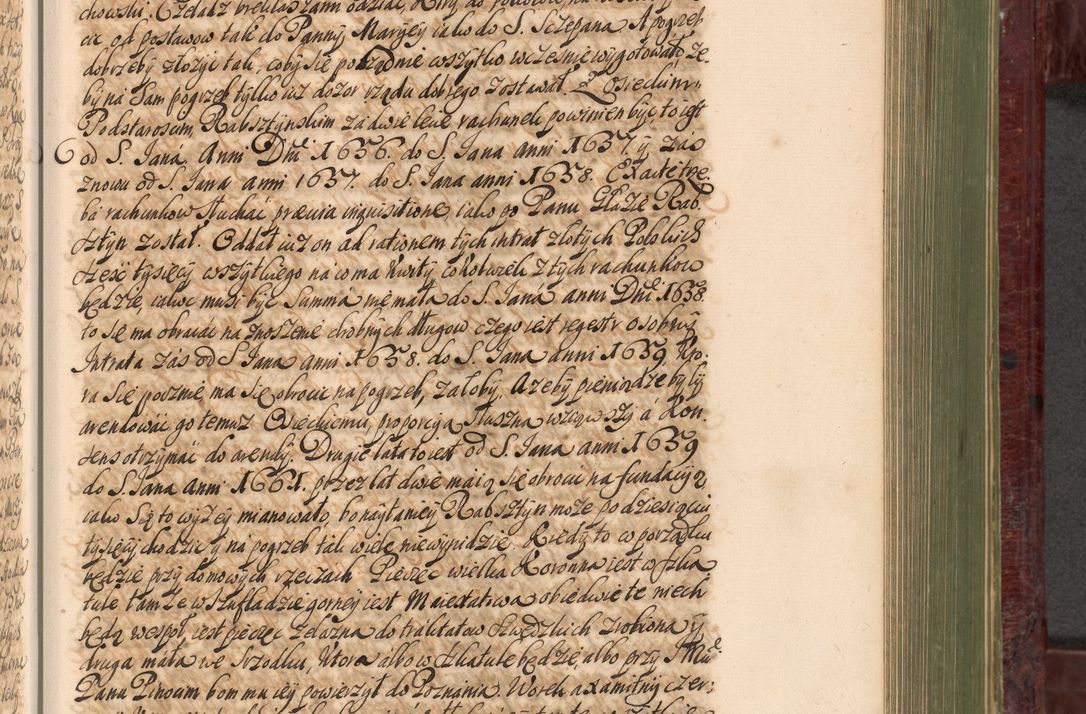 chowski. Czeladź brekleszami odziac, Kiry do
cie od postawow tak do Panny Maryey iako do S. Sczepana. A pogrzeb
dobrzeby złozyć tak, coby się porządnie wszytko wcześnie wygotowało, że
by na Sam pogrzeb tylko iuż dozor rządu dobrego zostawał. Z Osieckim
Podstaroscim Rabsztynskim za dwie lecie rachunek powinien być to iest
od S. Jana Anni Dni 1656. do S. Jana anni 1657. y zas
znowu od S. Jana anni 1657. do S. Jana anni 1658. Exacte trze
ba rachunkow słuchać praevia inquisitione, iako go Panu Rab
sztyn został. Oddał iuż on ad rationem tych intrat złotych Polskich
sześć tysięcy wszytkiego na co ma kwity cokolwiek z tych rachunkow
będzie, iakoż musi być Summa nie mała do S. Jana anni Dni 1658.
to się ma obracać na znoszenie drobnych długow czego iest regestr osobny
Intrata zas od S. Jana anni 1658. do S. Jana anni 1659. Kto
ra się pocznie ma się obrocić na pogrzeb, załoby. A żeby pieniądze były
arendować go temuż Osieckiemu, proporcyą słuszną wziąwszy a Kon
sens otrzymać do arendy. Drugie lata to iest od S. Jana anni 1659
do S. Jana anni 1661. przez lat dwie maią się obrocić na fundacyą
iako się to wyżey mianowało, bo naytaniey Rabsztyn może po dziesiąciu
tysięcy chodzić y na pogrzeb tak wiele nie wynidzie. Kiedy to w porządku
będzie przy domowych rzeczach Pieczęć wielka Koronna iest w szka
tule tamże w szufladzie gorney iest Maiestatowa obiedwie te niech
będą wespoł, iest pieczęć żelazna do traktatow Szwedzkich zrobiona y
druga mała we Srzodku, ktora albo w szkatule będzie, albo przy
Panu Pinocim bom ma iey powierzył do Poznania. Worek axamitny czer